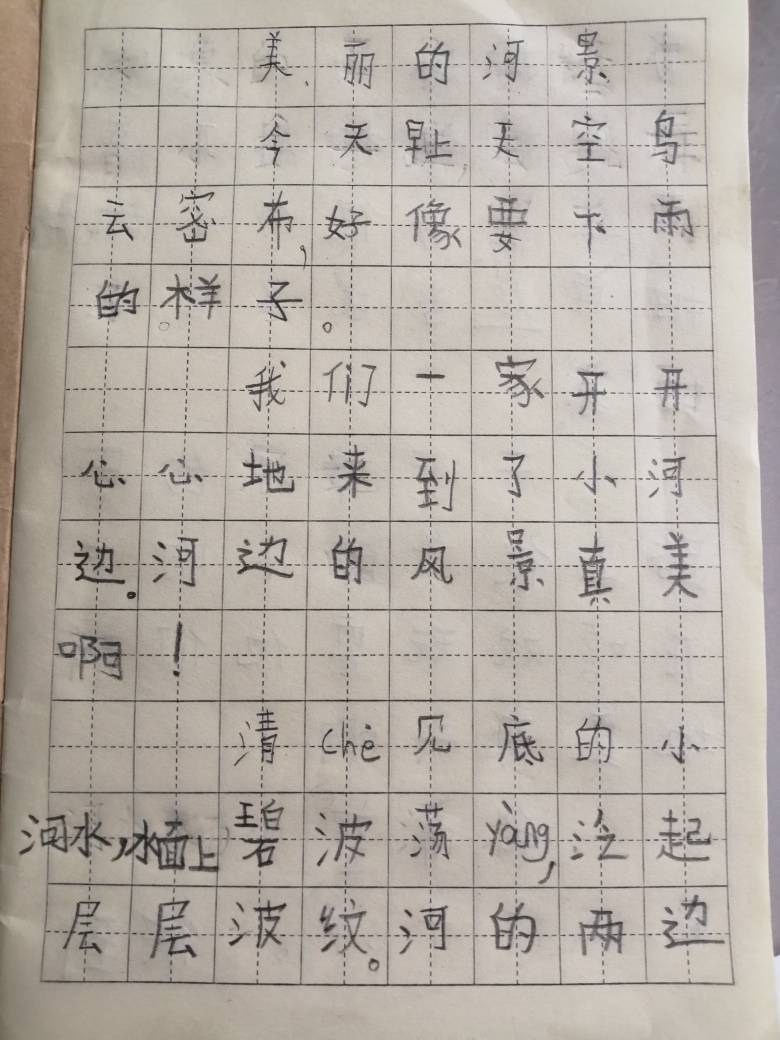 美丽的河景
今天早上,天空鸟
云密布,好像要下雨
的样子。
我们一家开开
心心地来到了小河
边。河边的风景真美
啊!
清chè见底的小
河水,水面上碧波荡yàng,泛起
层层波纹。河的两边